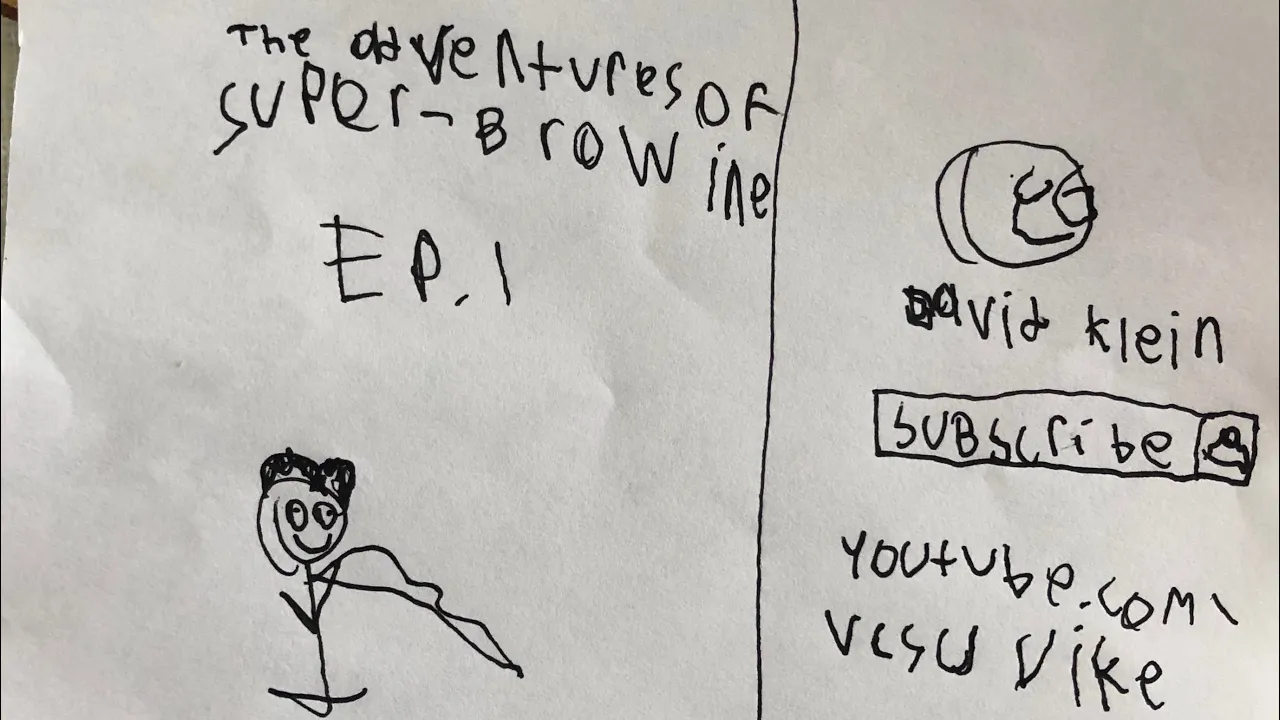 The adventures of
super-Browine
EP.1
David Klein
subscribe
youtube.com\
vcsu vike